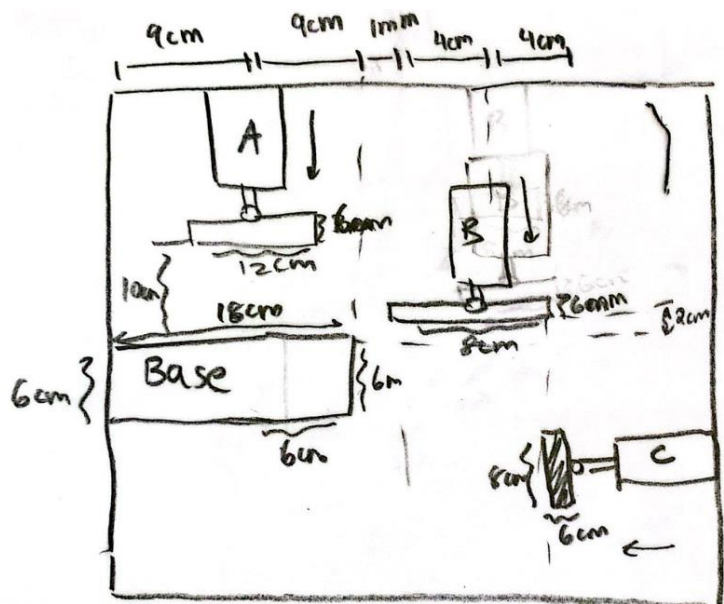 9cm 9cm 1mm 4cm 4cm
A
B
6mm
12cm
10cm
18cm
6mm
8cm
2cm
Base
6cm
6m
6cm
C
8cm
6cm